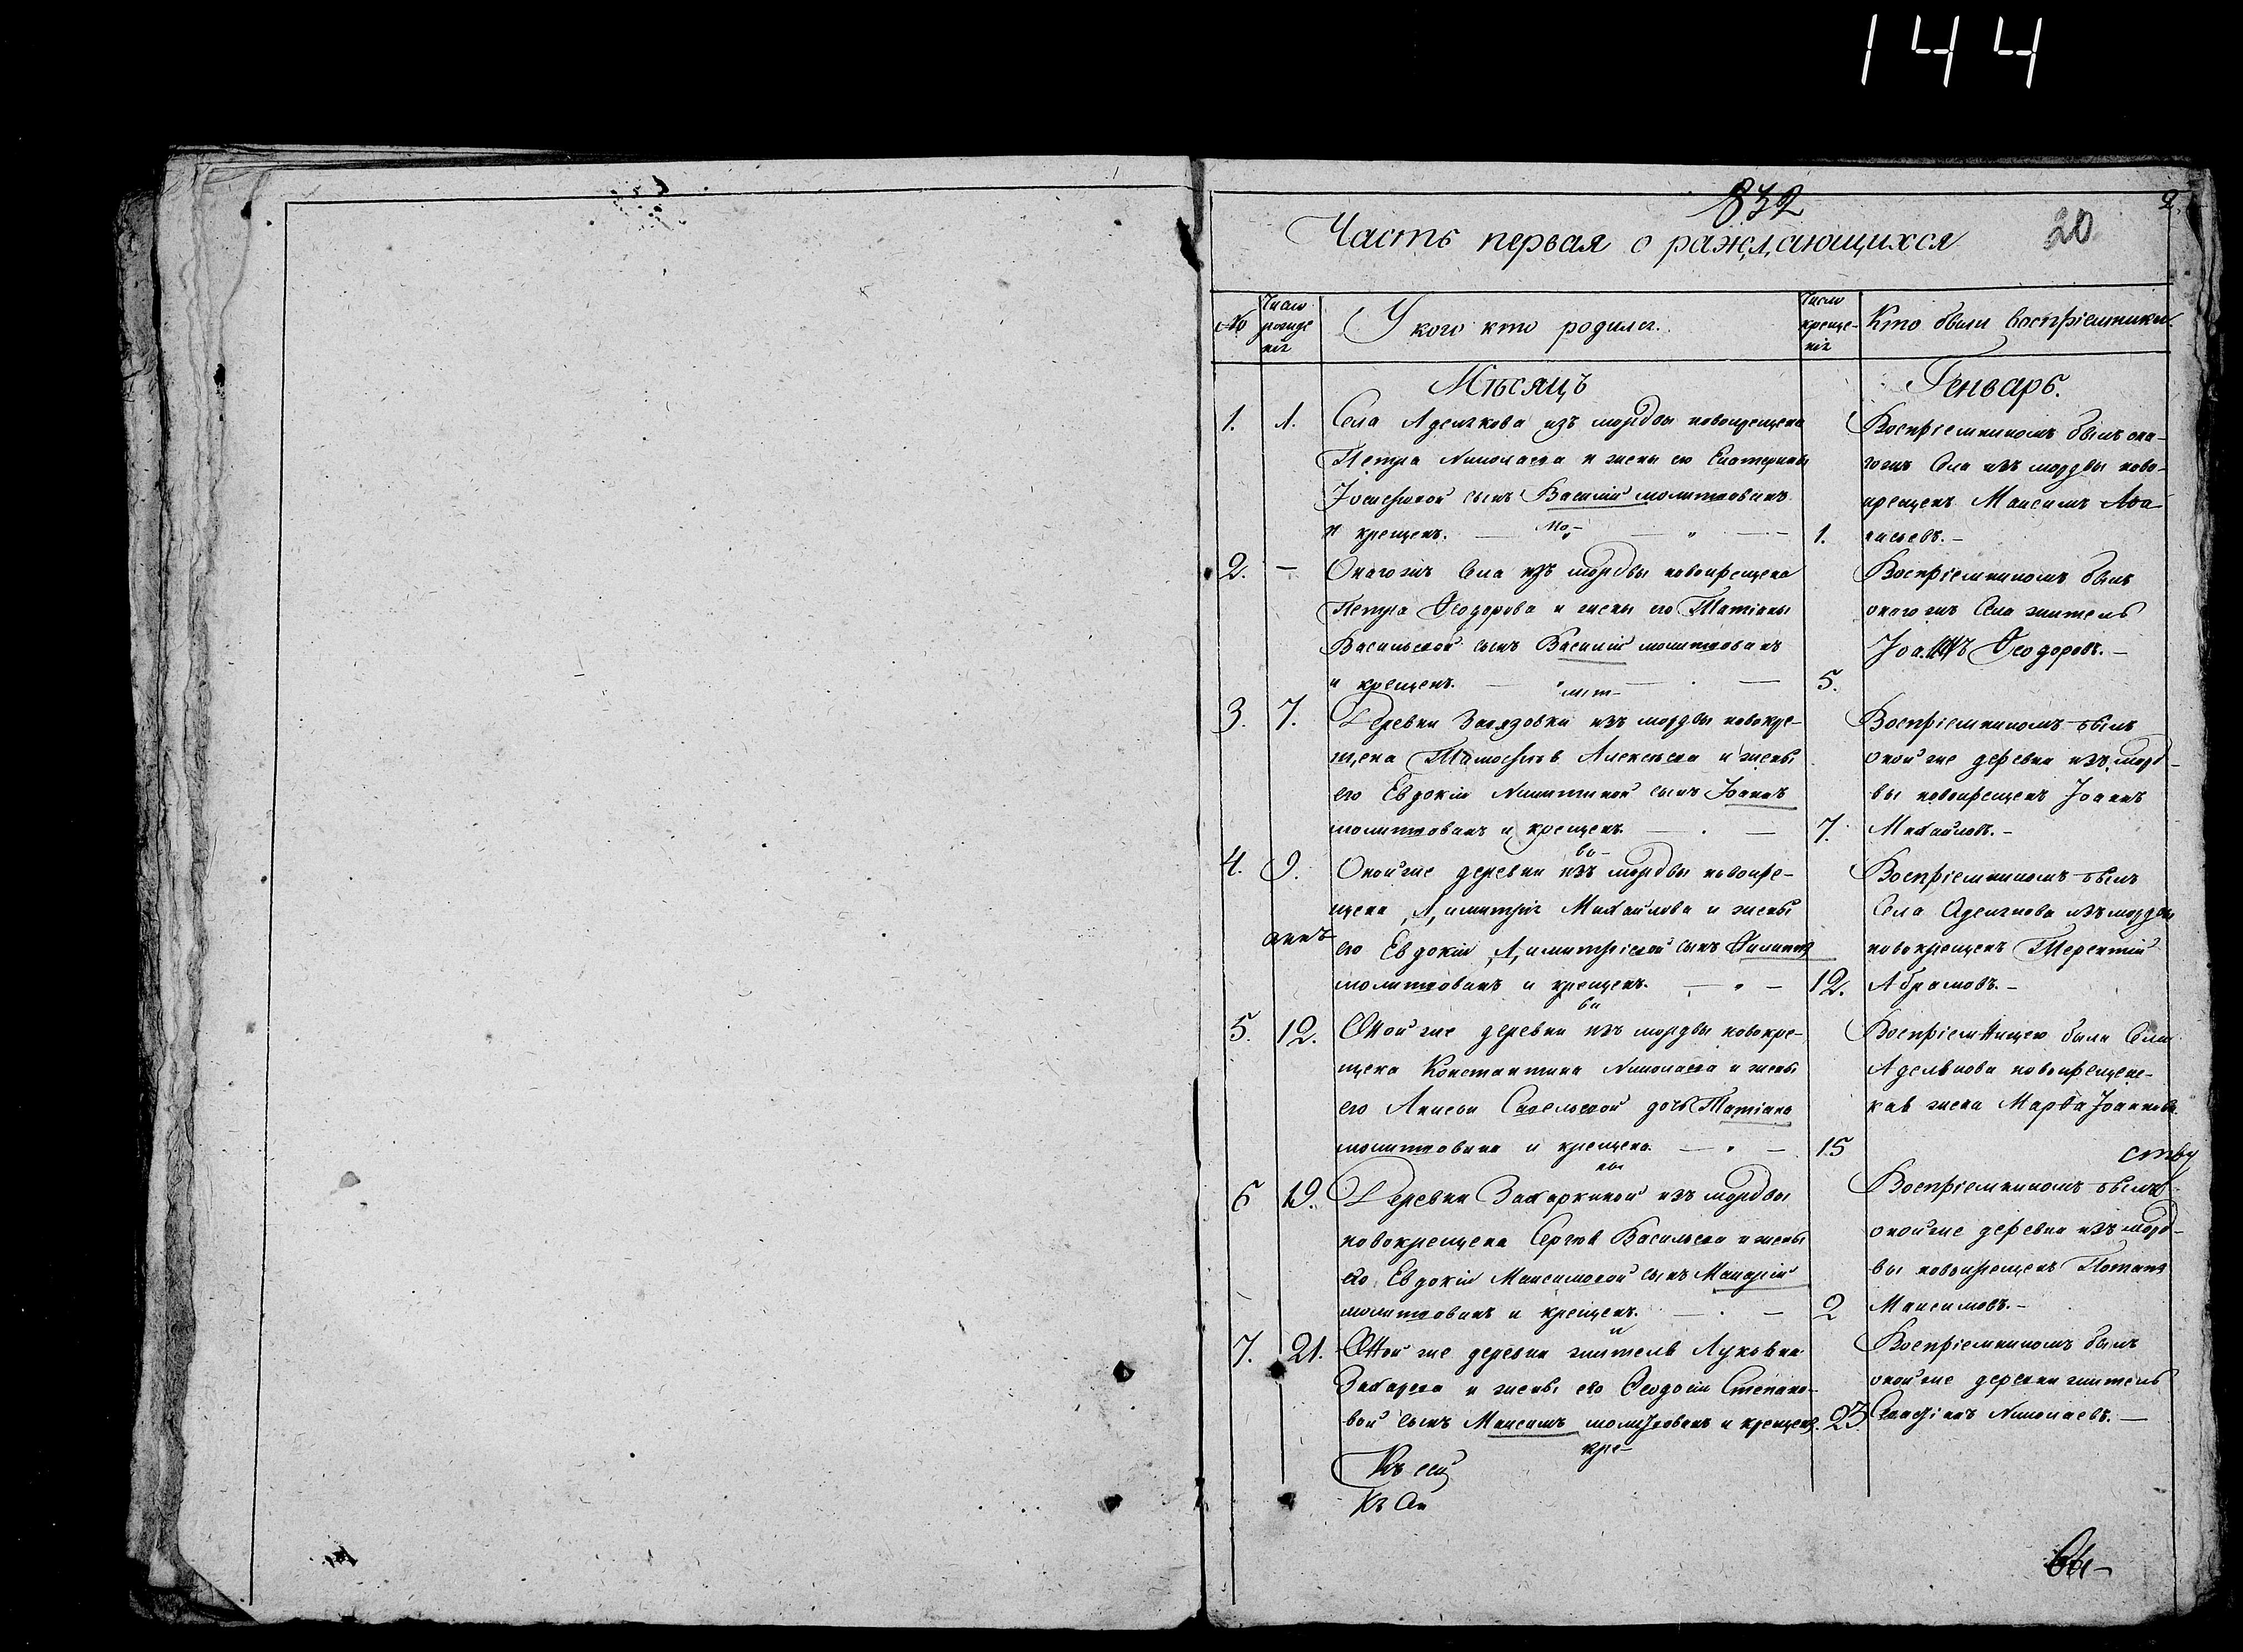 144
832
2.
Часть первая о раждающихся
20
№
Число рожде нія
У кого кто родился.
Число креще- нія
Кто были воспріемники.
Мѣсяцъ
Генварь.
1. 1. Села Аделякова изъ мордвы новокрещена
Петра Николаева и жены его Екатерины
Іосифовой сынъ Василій молитвованъ
и крещенъ. — 1.
Воспріемникомъ былъ она-
гожъ Села изъ мордвы ново-
крещенъ Максимъ Аѳа-
насьевъ. —
2. — Онагожъ Села изъ мордвы новокрещена
Петра Ѳеодорова и жены его Татіаны
Васильевой сынъ Василій молитвованъ
и крещенъ. — 5.
Воспріемникомъ былъ
оногожъ Села житель
Іоаннъ Ѳеодоровъ. —
3. 7. Деревни изъ мордвы новокре-
щена Тимофѣя Алексѣева и жены
его Евдокіи Никитиной сынъ Іоаннъ
молитвованъ и крещенъ. — 7.
Воспріемникомъ былъ
оной же деревни изъ морд-
вы новокрещенъ Іоаннъ
Михайловъ. —
4. 9. Оной же деревни изъ мордвы новокре-
щена Димитрія Михайлова и жены
его Евдокіи Димитріевой сынъ Филиппъ
молитвованъ и крещенъ. — 12.
Воспріемникомъ былъ
Села Аделякова изъ мордвы
новокрещенъ Терентій
Абрамовъ. —
5. 12. Оной же деревни изъ мордвы новокре-
щена Константина Николаева и жены
его Анисьи Савельевой дочь Татіана
молитвована и крещена. — 15
Воспріемницею была Села
Аделякова новокрещенс-
кая жена Марѳа Іоаннова.
6 19. Деревни Захаркиной изъ мордвы
новокрещена Сергѣя Васильева и жены
его Евдокіи Максимовой сынъ Макарій
молитвованъ и крещенъ. — 2
Воспріемникомъ былъ
оной же деревни изъ морд-
вы новокрещенъ Потапъ
Максимовъ. —
7. 21. Оной же деревни житель
Захарова и жены его Ѳеодосіи Степано-
вой сынъ Максимъ молитвованъ и крещенъ. 23.
Воспріемникомъ былъ
оной же деревни житель
Николаевъ. —
Къ сей
вы-